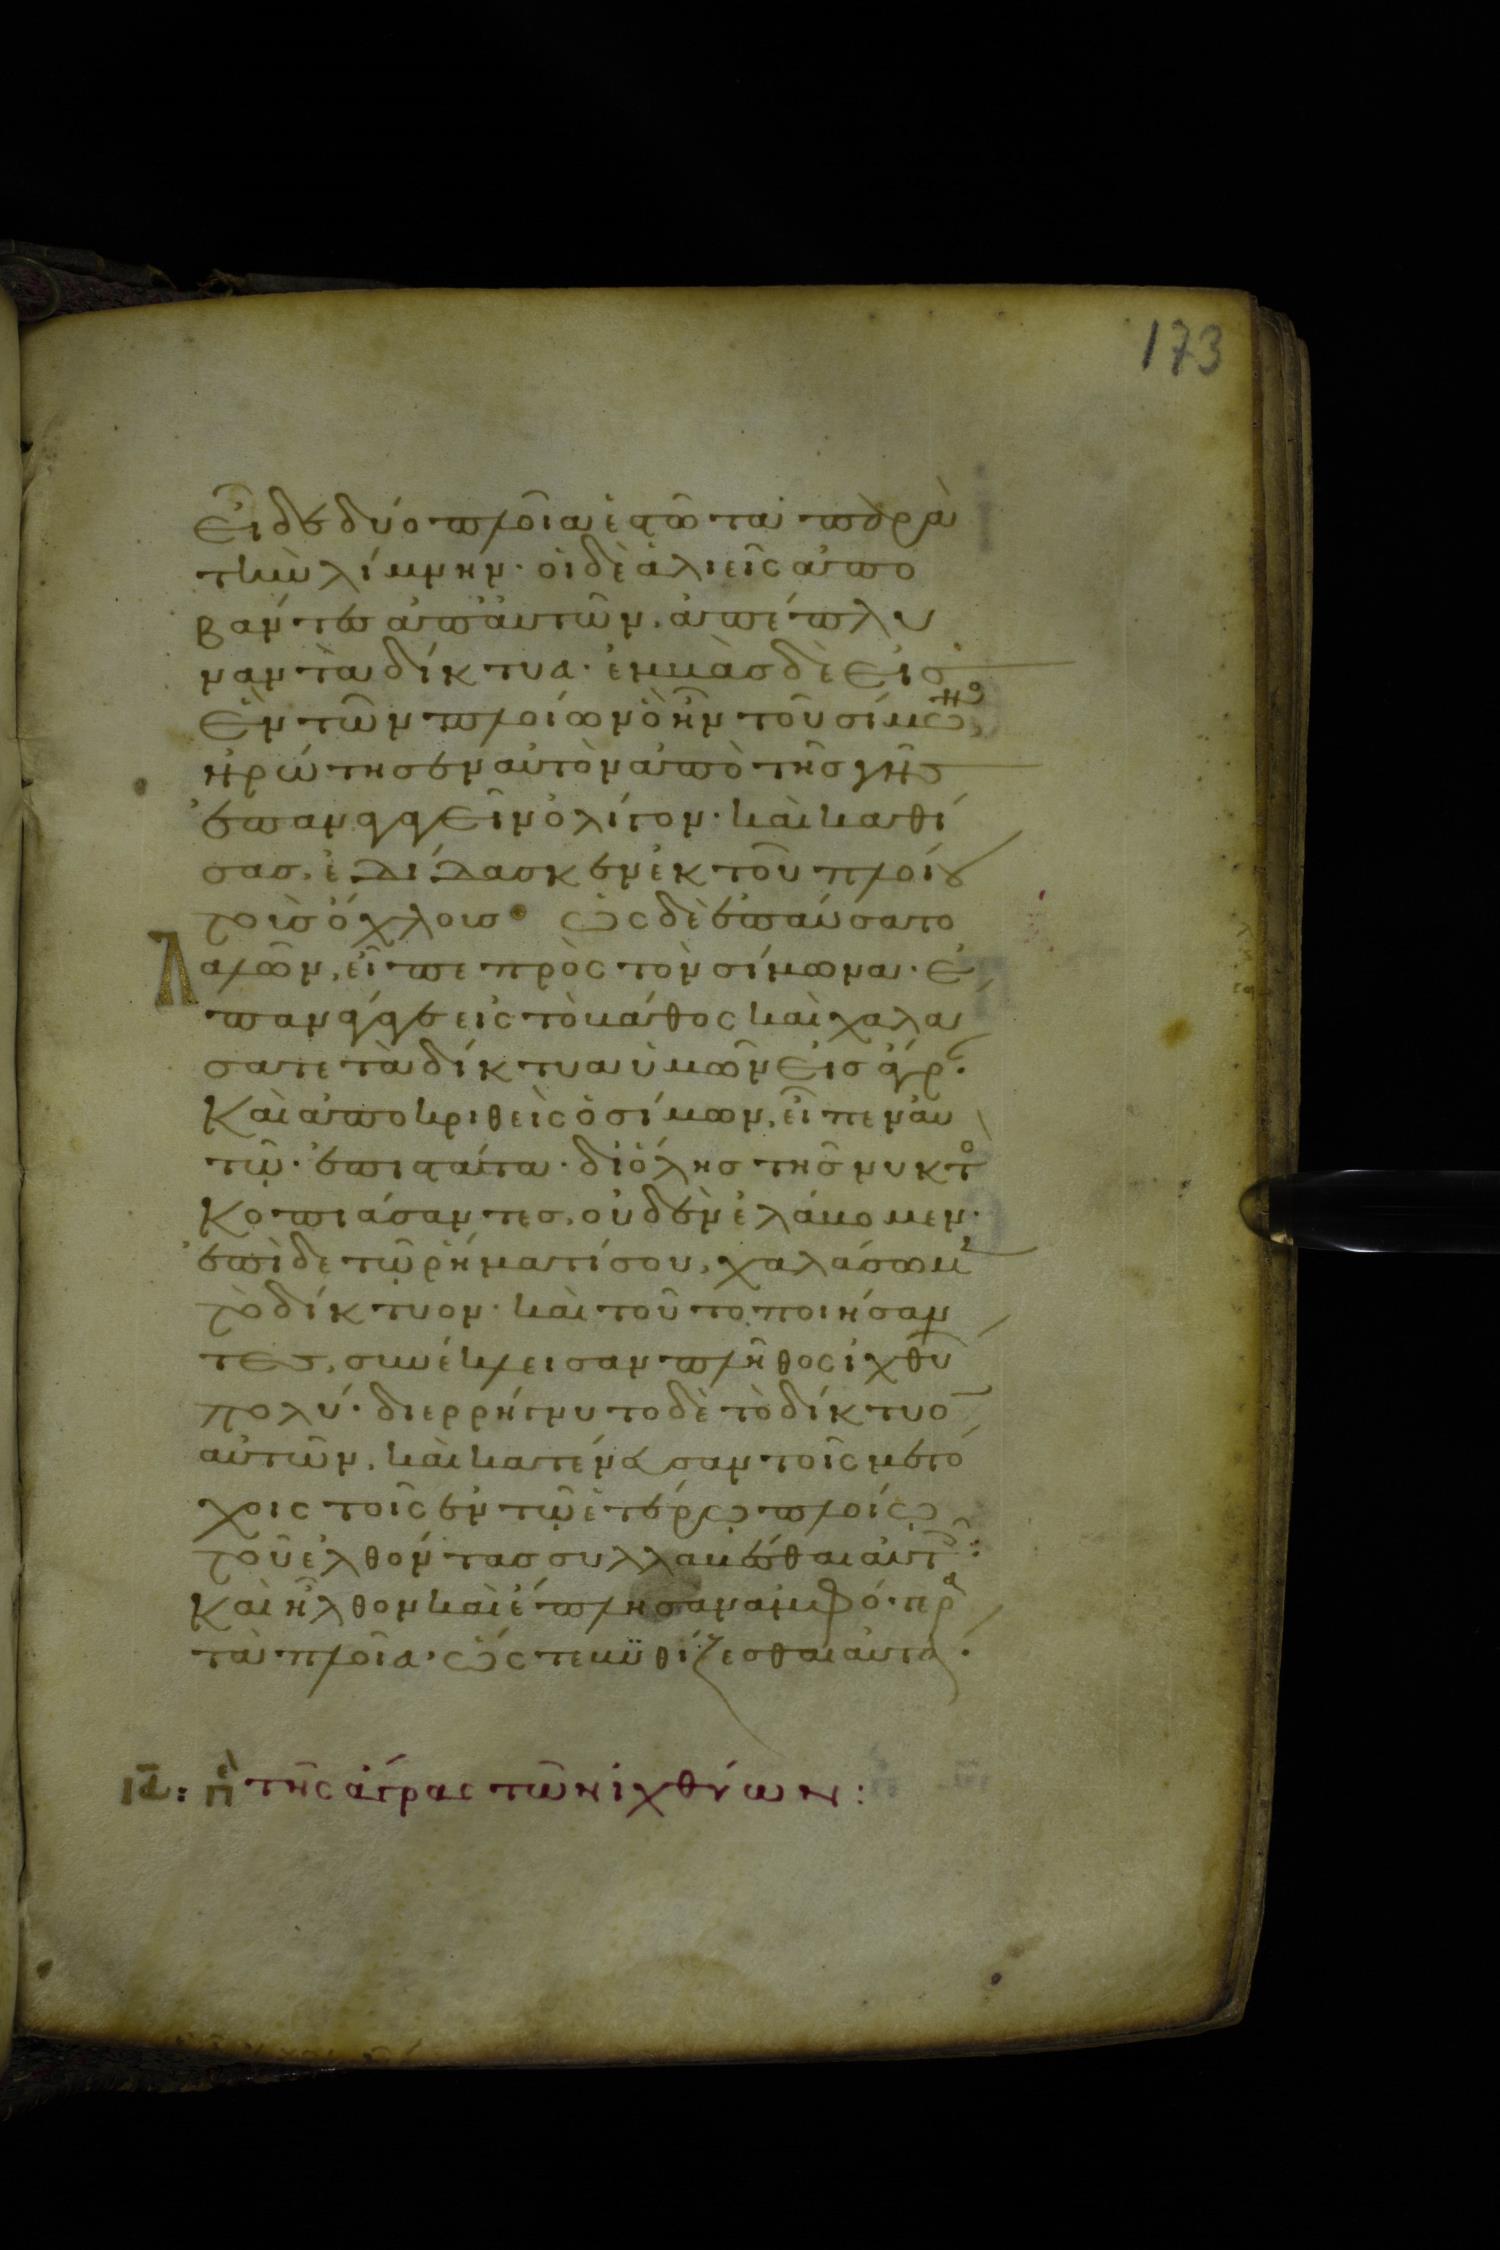 173
εἶδε δύο πλοῖα ἑστῶτα παρὰ
τὴν λίμνην· οἱ δὲ ἁλιεῖς ἀπο
βάντες ἀπ' αὐτῶν, ἀπέπλυ
ναν τὰ δίκτυα· ἐμβὰς δὲ εἰς
ἓν τῶν πλοίων ὃ ἦν τοῦ σίμωνο,
ἠρώτησεν αὐτὸν ἀπὸ τῆς γῆς
ἐπαναγαγεῖν ὀλίγον· καὶ καθί
σας, ἐδίδασκεν ἐκ τοῦ πλοίου
τοὺς ὄχλους· ὡς δὲ ἐπαύσατο
λαλῶν, εἶπε πρὸς τὸν σίμωνα· ἐ
πανάγαγε εἰς τὸ βάθος καὶ χαλά
σατε τὰ δίκτυα ὑμῶν εἰς ἄγρ·
Καὶ ἀποκριθεὶς ὁ σίμων, εἶπεν αὐ
τῷ· ἐπιστάτα· δι' ὅλης τῆς νυκτὸ
Κοπιάσαντες, οὐδὲν ἐλάβομεν·
ἐπὶ δὲ τῷ ῥήματί σου, χαλάσωμ
τὸ δίκτυον· καὶ τοῦτο ποιήσαν
τες, συνέκλεισαν πλῆθος ἰχθύ
πολύ· διερρήγνυτο δὲ τὸ δίκτυο
αὐτῶν, καὶ κατένευσαν τοῖς μετό
χοις τοῖς ἐν τῷ ἑτέρῳ πλοίῳ
τοῦ ἐλθόντας συλλαβέσθαι αὐτ:
Καὶ ἦλθον καὶ ἔπλησαν ἀμφό·τερα
τὰ πλοῖα· ὥστε βυθίζεσθαι αὐτά·
ιδ: π τῆς ἄγρας τῶν ἰχθύων: